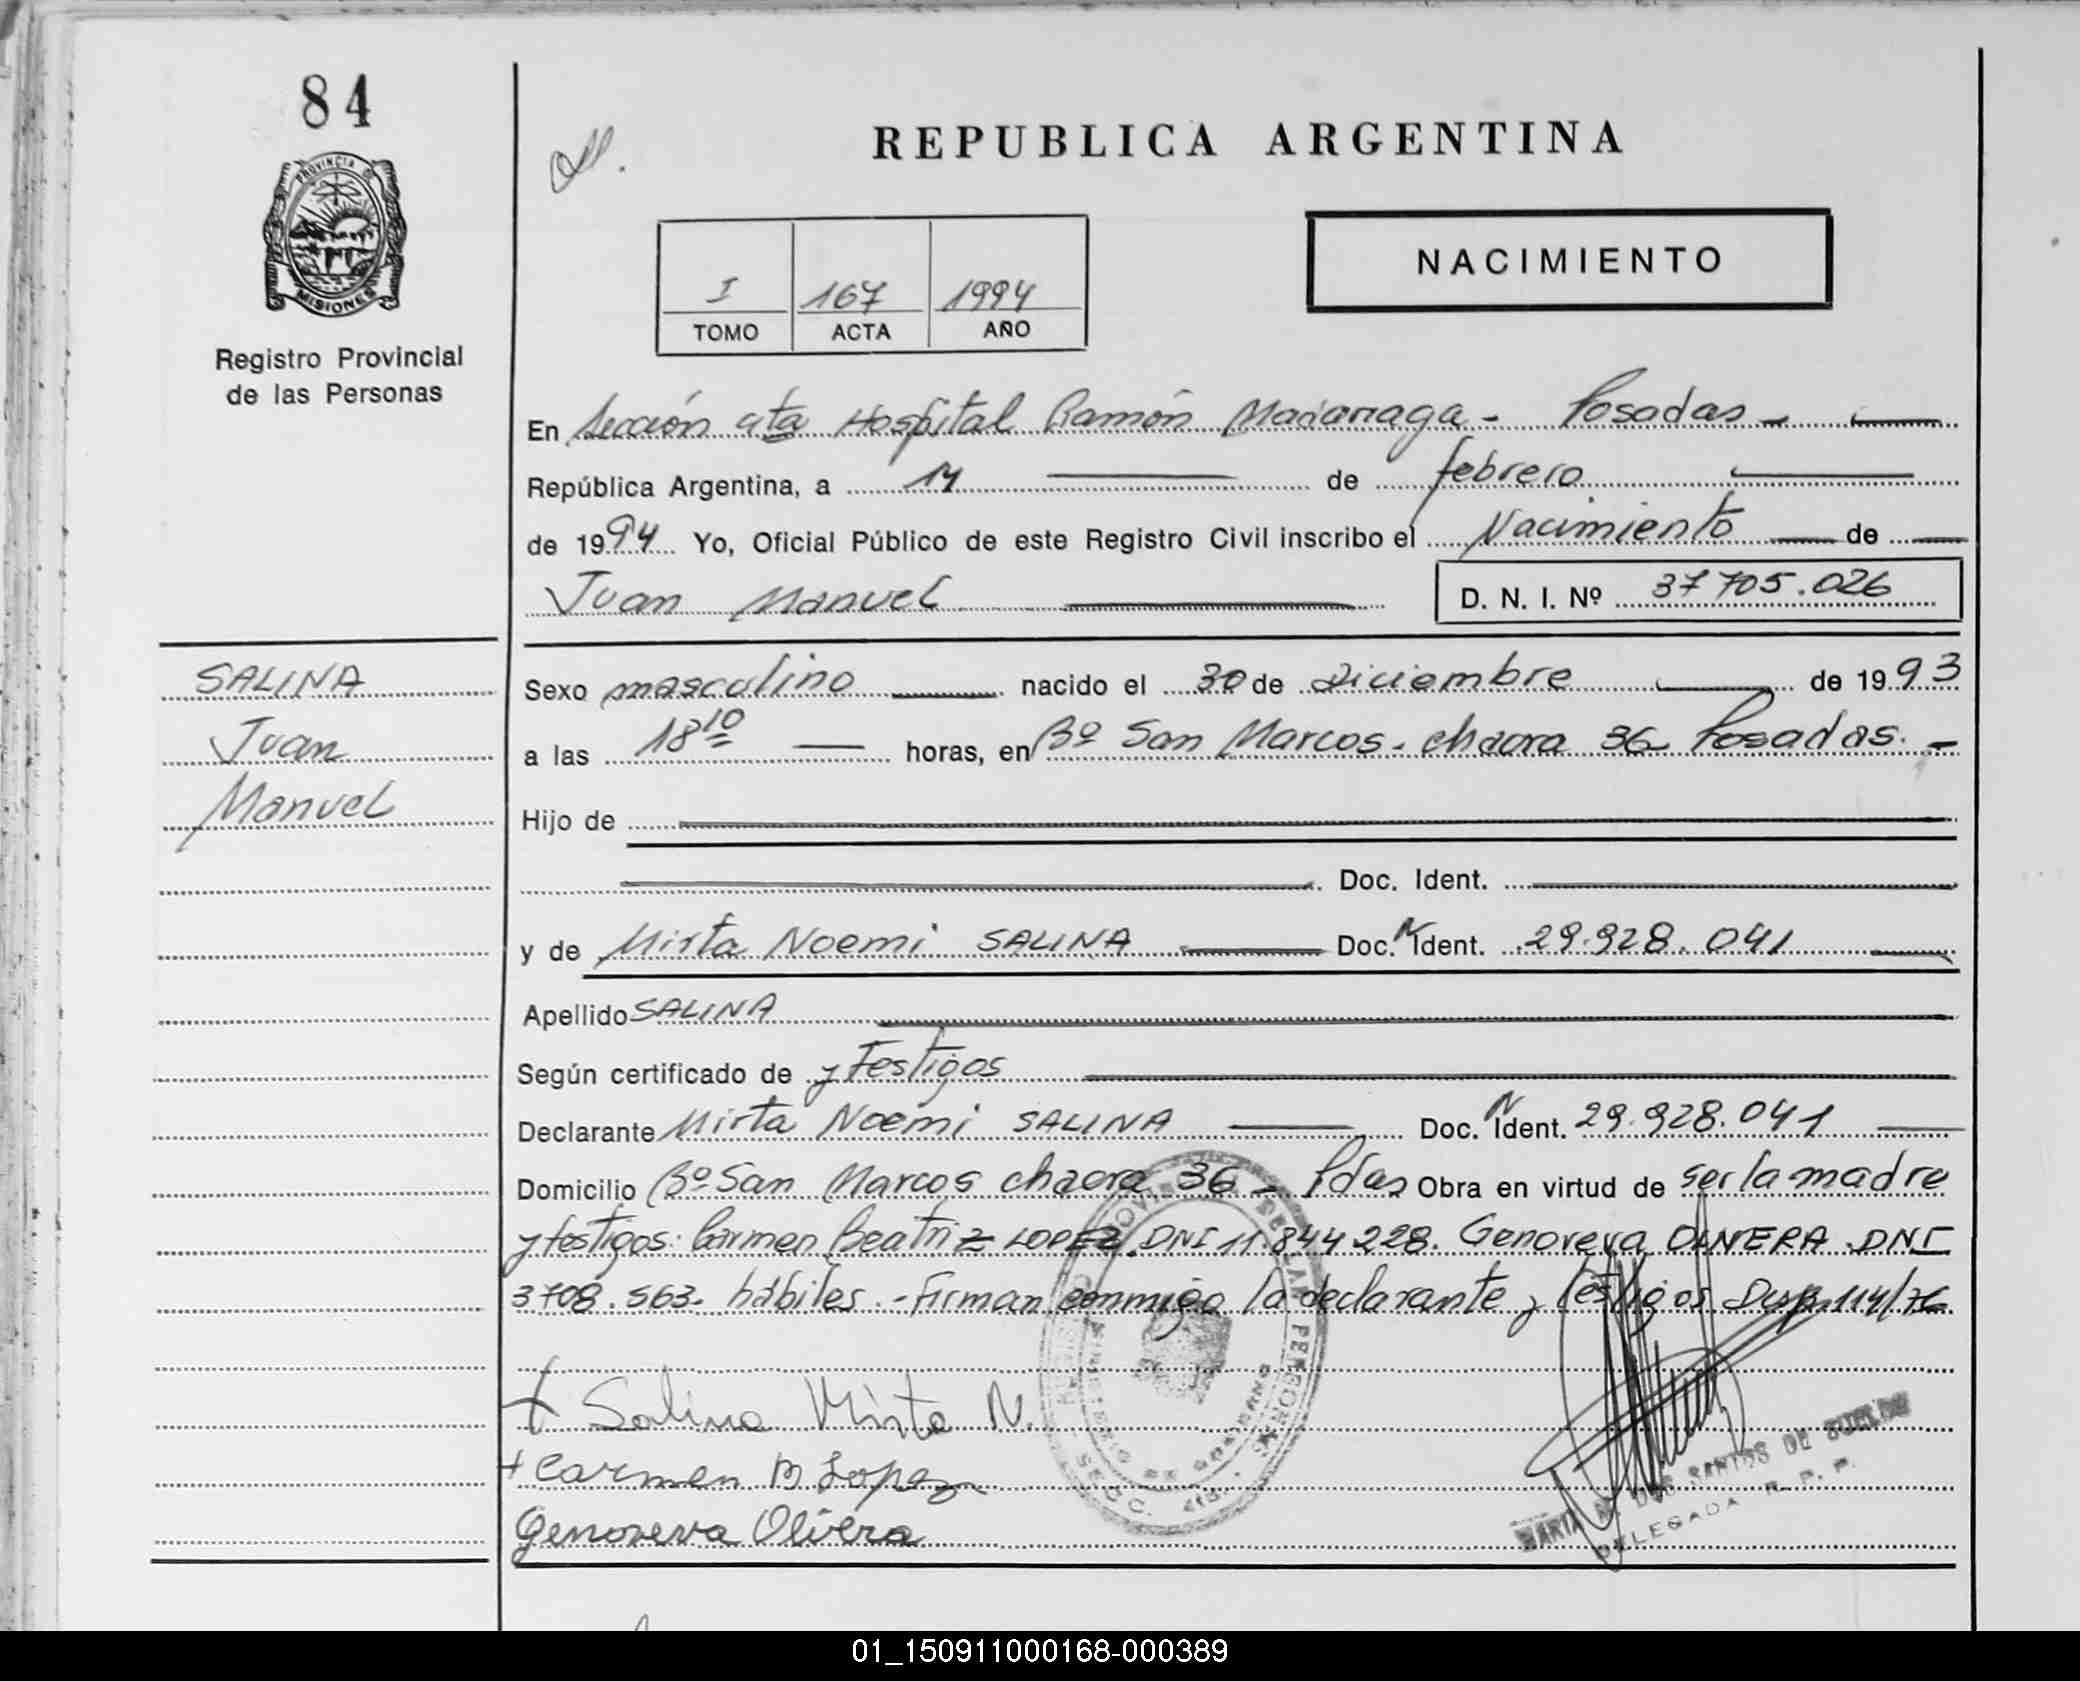 84
PROVINCIA DE
MISIONES
Registro Provincial
de las Personas
REPUBLICA ARGENTINA
NACIMIENTO
I 167 1994
TOMO ACTA AÑO
En Sección 4ta Hospital Ramón Madariaga - Posadas -
República Argentina, a 14 de febrero
de 1994 Yo, Oficial Público de este Registro Civil inscribo el Nacimiento de
Juan Manuel D. N. I. Nº 37705.026
SALINA
Juan
Manuel
Sexo masculino nacido el 30 de Diciembre de 1993
a las 18 10 horas, en Bº San Marcos - chacra 36 Posadas. -
Hijo de
Doc. Ident.
y de Mirta Noemi SALINA Doc. N Ident. 29.928.041
Apellido SALINA
Según certificado de y Testigos
Declarante Mirta Noemi SALINA Doc. N Ident. 29.928.041
Domicilio Bº San Marcos chacra 36 - Pdas Obra en virtud de ser la madre
y testigos: Carmen Beatriz LOPEZ. DNI 11.844 228. Genoveva OLIVERA DNI
3708.563. hábiles. - Firman conmigo la declarante y testigos Disp. 114/76
+ Salina Mirta N.
+ Carmen B Lopez
Genoveva Olivera
MARIA DOS SANTOS DE
DELEGADA R. P. P.
01_150911000168-000389